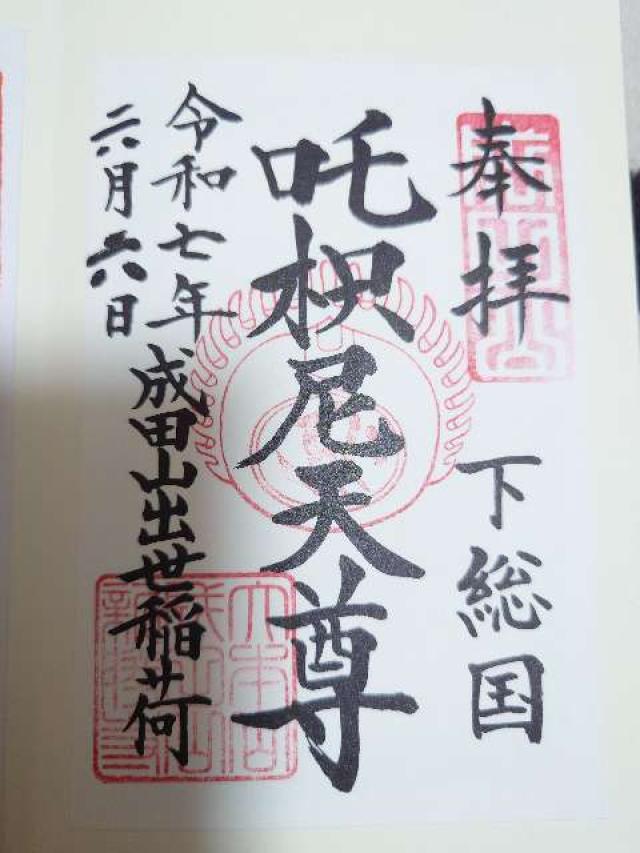 奉拝
下総国
吒枳尼天尊
令和七年
六月六日
成田山出世稲荷